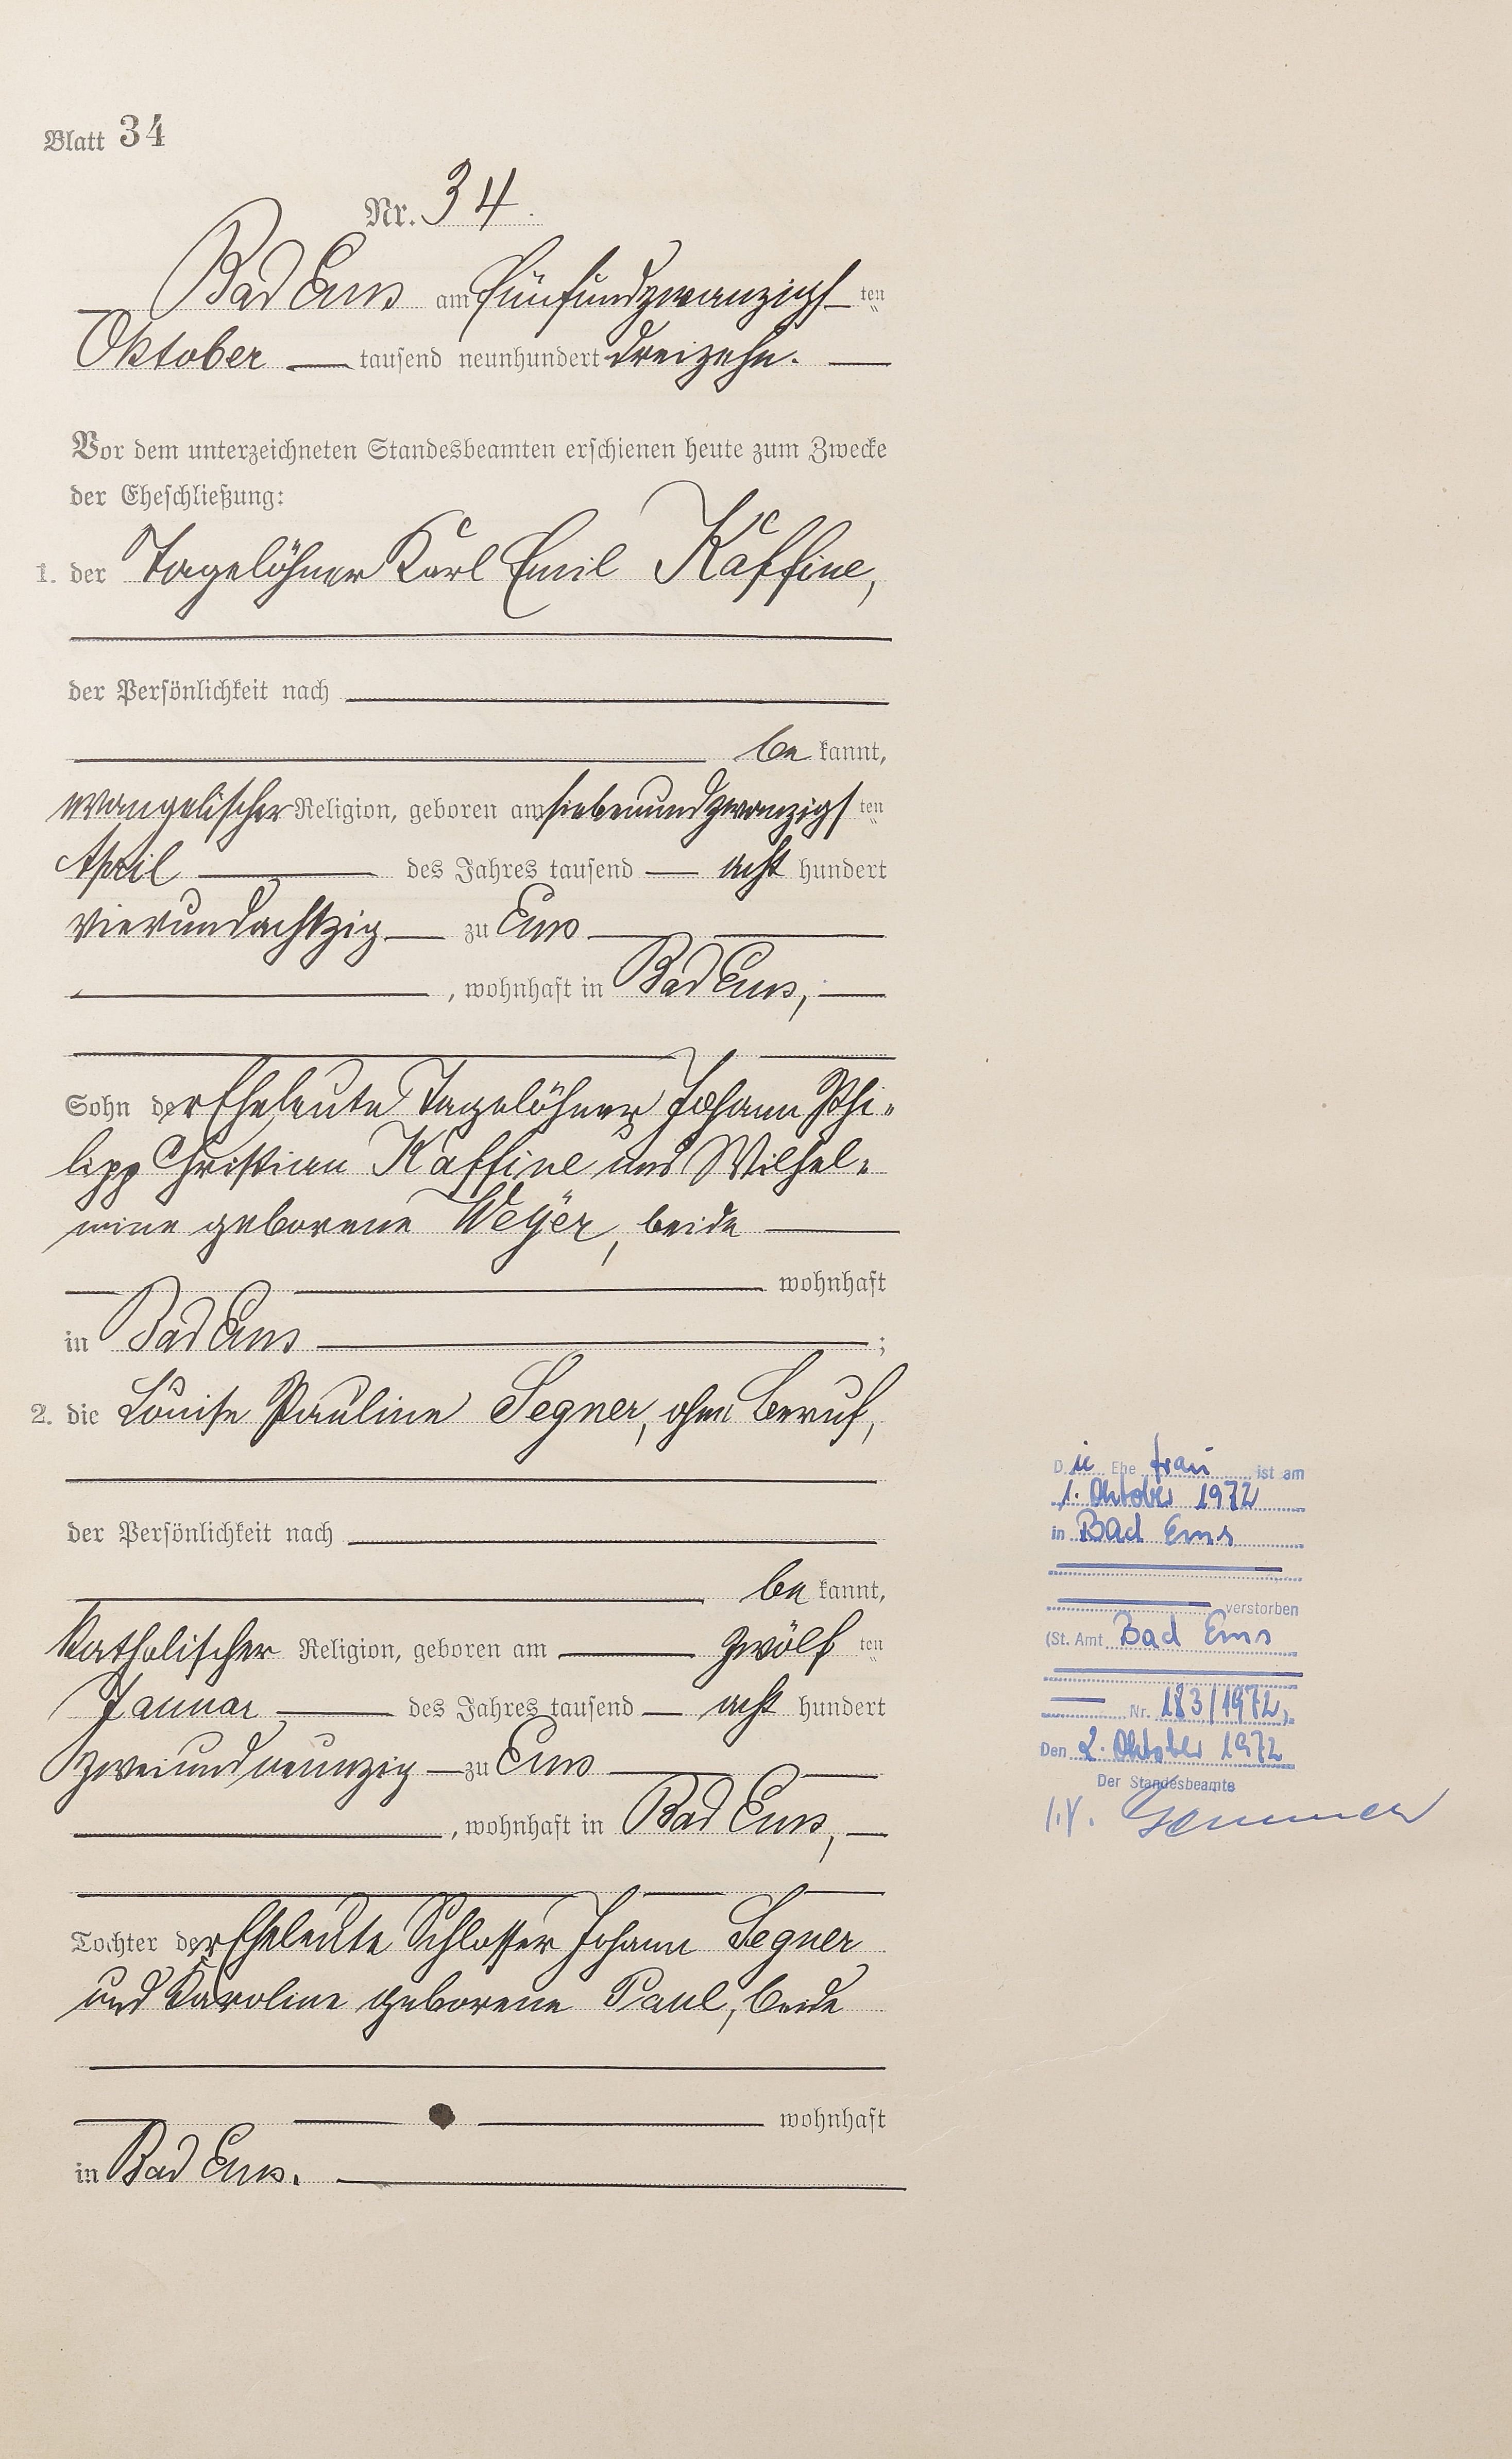 Blatt 34
Nr. 34.
Bad Ems am fünfundzwanzigsten
Oktober tausend neunhundert dreizehn.
Vor dem unterzeichneten Standesbeamten erschienen heute zum Zwecke
der Eheschließung:
1. der Tagelöhner Karl Emil Kaffine,
der Persönlichkeit nach
bekannt,
evangelischer Religion, geboren am siebenundzwanzigsten
April des Jahres tausend acht hundert
vierundachtzig zu Ems
, wohnhaft in Bad Ems,
Sohn der Eheleute Tagelöhner Johann Phi-
lipp Christian Kaffine und Wilhel-
mine geborene Weyer, beide
wohnhaft
in Bad Ems ;
2. die Louise Pauline Segner, ohne Beruf,
der Persönlichkeit nach
bekannt,
katholischer Religion, geboren am zwölften
Januar des Jahres tausend acht hundert
zweiundneunzig zu Ems
, wohnhaft in Bad Ems,
Tochter der Eheleute Schlosser Johann Segner
und Karoline geborene Paul, beide
wohnhaft
in Bad Ems.
Die Ehefrau ist am
1. Oktober 1972
in Bad Ems
verstorben
(St. Amt Bad Ems
Nr. 183/1972).
Den 2. Oktober 1972
Der Standesbeamte